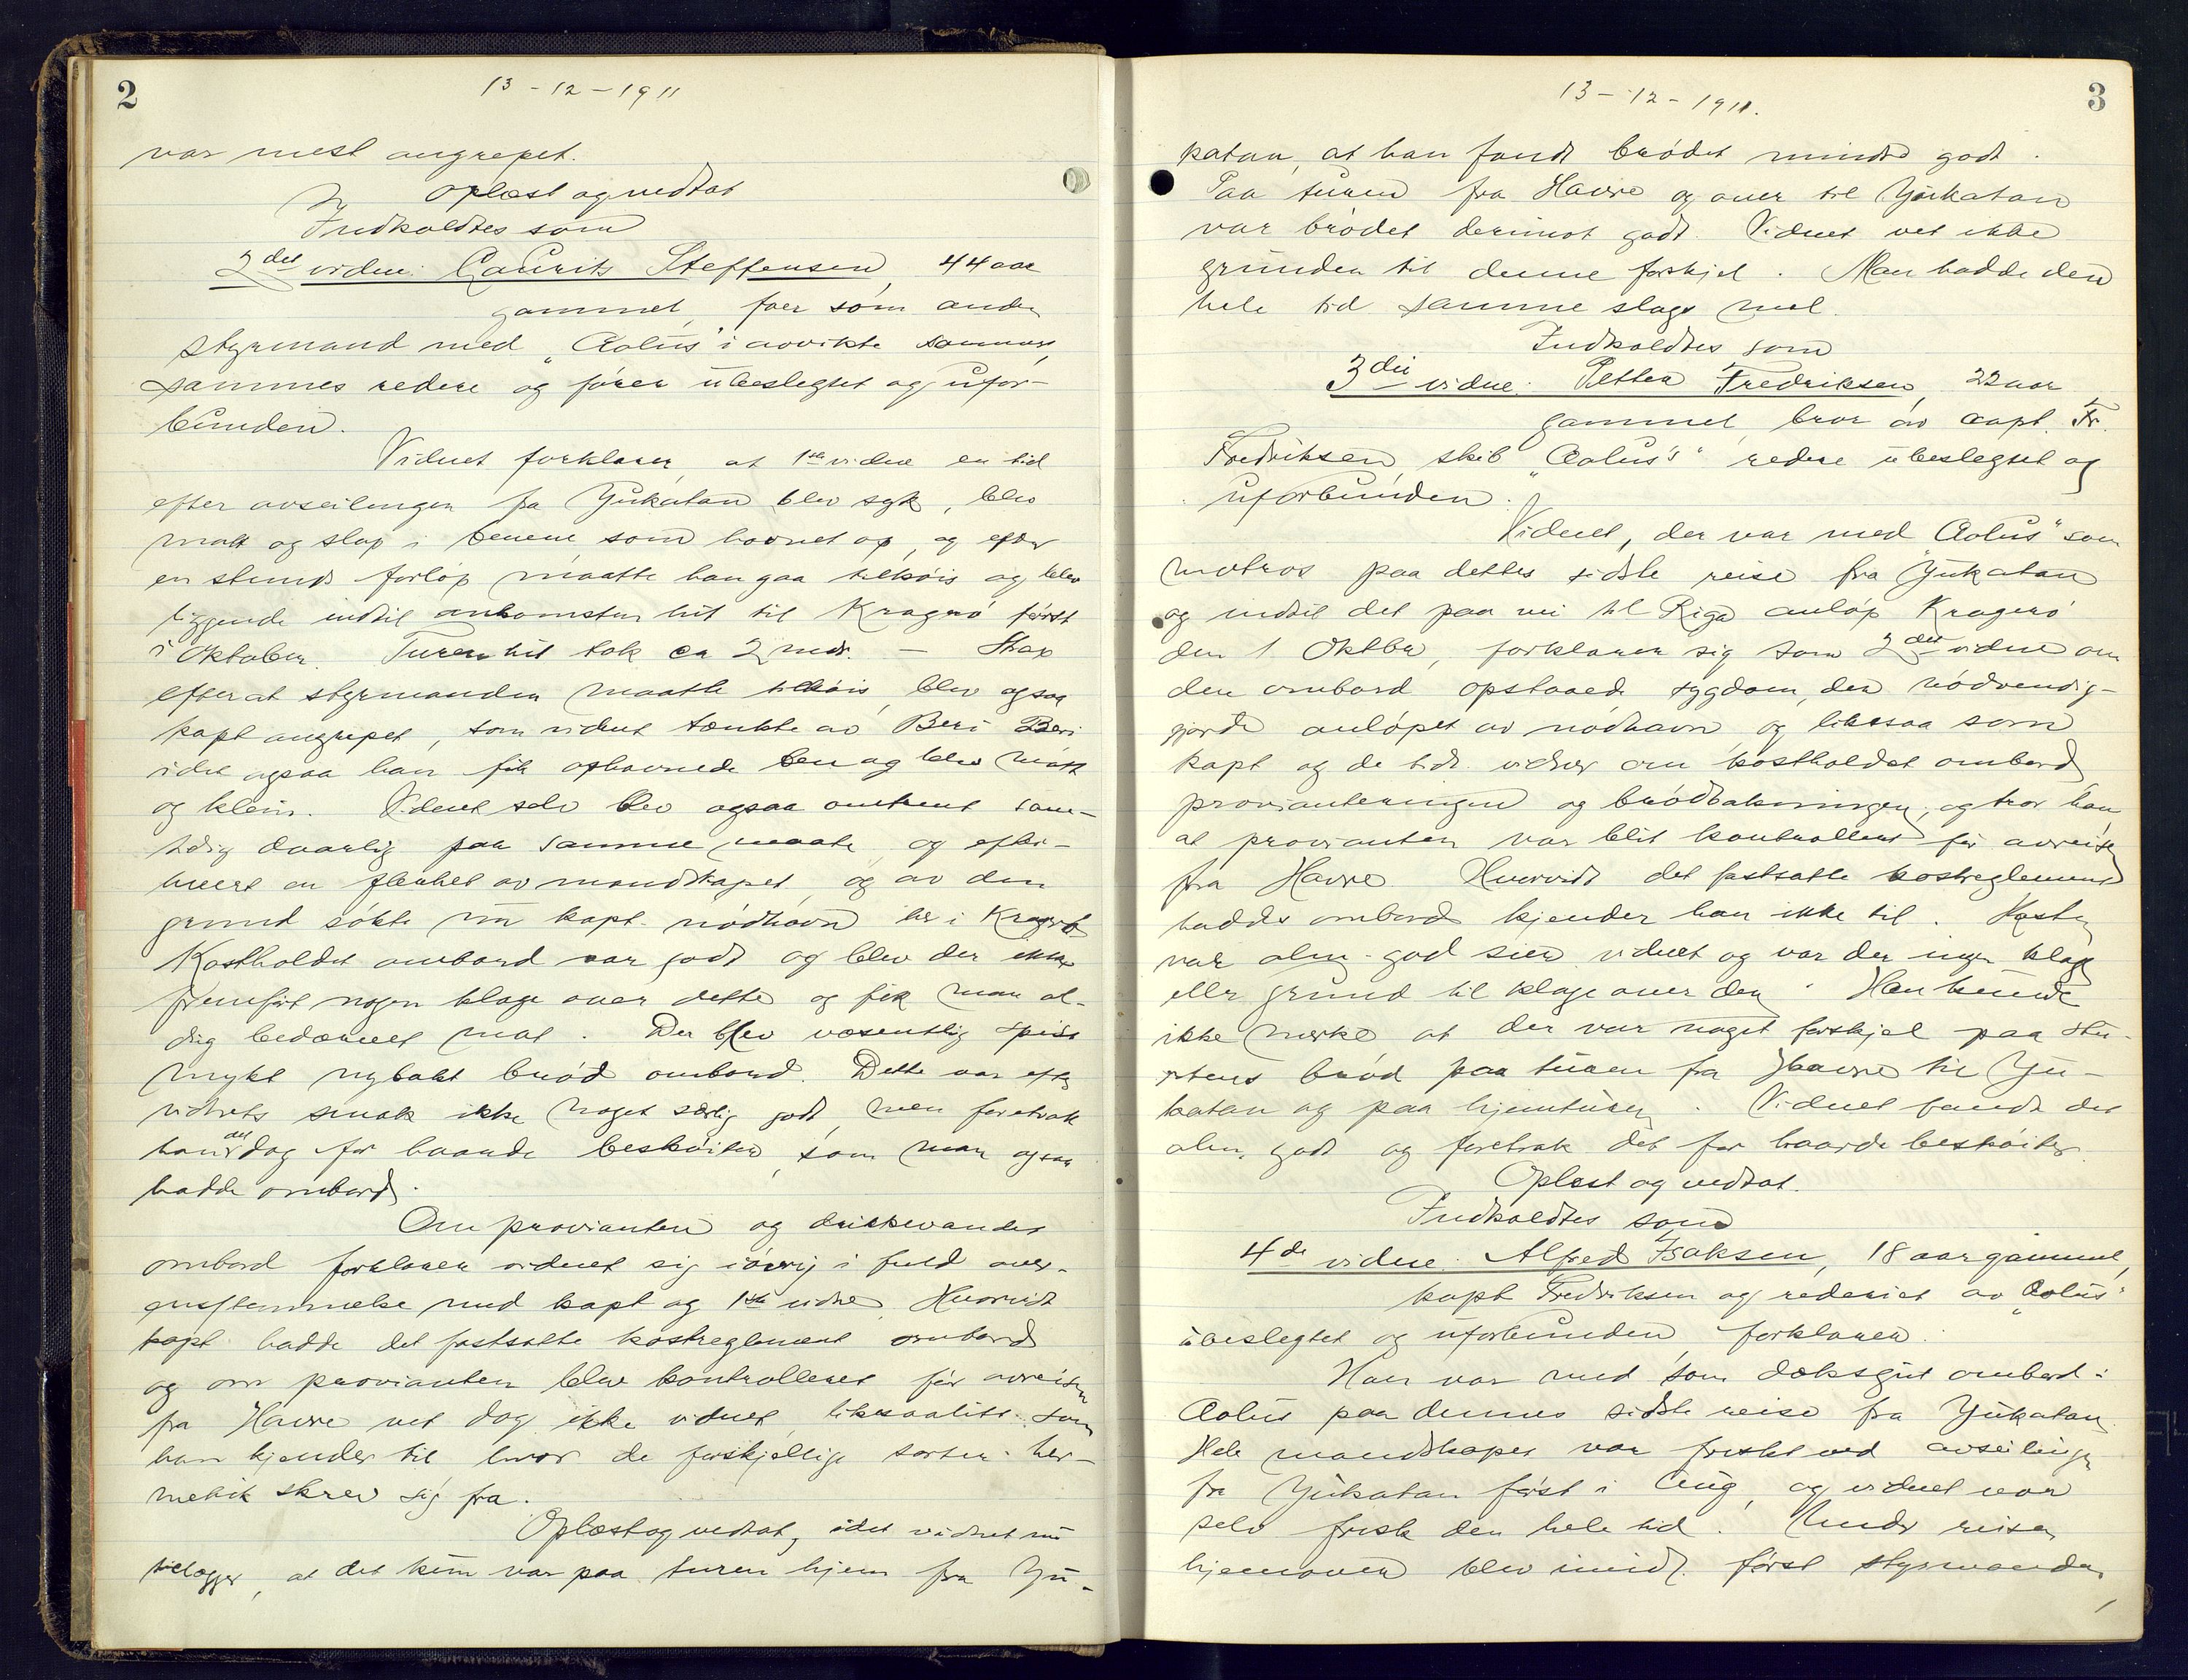 2
13-12-1911
var mest angrepet.
Oplæst og vedtat
Indkaldtes som
2det vidne: Laurits Steffensen, 44 aar
gammel, foer som anden
styrmand med "Æolus" i avvikte sommer,
sammes redere og fører ubeslegtet og ufor-
bunden.
Vidnet forklarer, at 1ste vidne en tid
efter avseilingen fra Yukatan blev syk, blev
matt og slap i benene som hovnet op, og efter
en stunds forløp maatte han gaa tilkøis og blev
liggende indtil ankomsten hit til Kragerø først
i Oktober. Turen hit tok ca 2 mdr. — Strax
efter at styrmanden maatte tilkøis, blev ogsaa
kapt angrepet, som vidnet tænkte av Beri Beri
idet ogsaa han fik ophovnede ben og blev matt
og klein. Vidnet selv blev ogsaa omtrent sam-
tidig daarlig paa samme maate, og efter-
hvert en flerhet av mandskapet, og av den
grund søkte nu kapt. nødhavn her i Kragerø
Kostholdet ombord var godt og blev der ikke
fremført nogen klage over dette og fik man al-
drig bedærvet mat. Der blev væsentlig spist
mykt nybakt brød ombord. Dette var efter
vidnets smak ikke noget særlig godt, men foretrak
han det dog for haarde beskøiter, som man ogsaa
hadde ombord.
Om provianten og drikkevandet
ombord forklarer vidnet sig iøvrig i fuld over-
ensstemmelse med kapt og 1ste vidne. Hvorvidt
kapt hadde det fastsatte kostreglement ombord
og om provianten blev kontrolleret før avreisen
fra Havre vet dog ikke vidnet, likesaalitt som
han kjender til hvor de forskjellige sorter her-
metik skrev sig fra.
Oplæst og vedtat, idet vidnet nu
tillægger, at det kun var paa turen hjem fra Yu-
13-12-1911.
3
katan, at han fandt brødet mindre godt.
Paa turen fra Havre og over til Yukatan
var brødet derimot godt. Vidnet vet ikke
grunden til denne forskjel. Man hadde den
hele tid samme slags mel.
Indkaldtes som
3die vidne: Petter Fredriksen, 22 aar
gammel, bror av capt. Fr.
Fredriksen, skib "Æolus's" redere ubeslegtet og
uforbunden.
Vidnet, der var med "Æolus" som
matros paa dettes sidste reise fra Yukatan
og indtil det paa vei til Riga anløp Kragerø
den 1 Oktbr, forklarer sig som 2det vidne om
den ombord opstaaede sygdom, der nødvendig-
gjorde anløpet av nødhavn, og likesaa som
kapt og de tidl. vidner om kostholdet ombord
provianteringen og brødbakningen, og tror han,
at provianten var blit kontrolleret før avreisen
fra Havre. Hvorvidt det fastsatte kostreglement
hadde ombord kjender han ikke til. Kosten
var alm. god sier vidnet og var der ingen klage
eller grund til klage over den. Han kunde
ikke merke at der var noget forskjel paa stu-
ertens brød paa turen fra Havre til Yu-
katan og paa hjemturen. Vidnet fandt det
alm. godt og foretrak det for haarde beskøiter.
Oplæst og vedtat.
Indkaldtes som
4de vidne: Alfred Isaksen, 18 aar gammel,
kapt Fredriksen og rederiet av "Æolus"
ubeslegtet og uforbunden, forklarer:
Han var med som dæksgut ombord i
Æolus paa dennes sidste reise fra Yukatan.
Hele mandskapet var friskt ved avseilingen
fra Yukatan først i Aug, og vidnet var
selv frisk den hele tid. Under reisen
hjemover blev imidl. først styrmanden